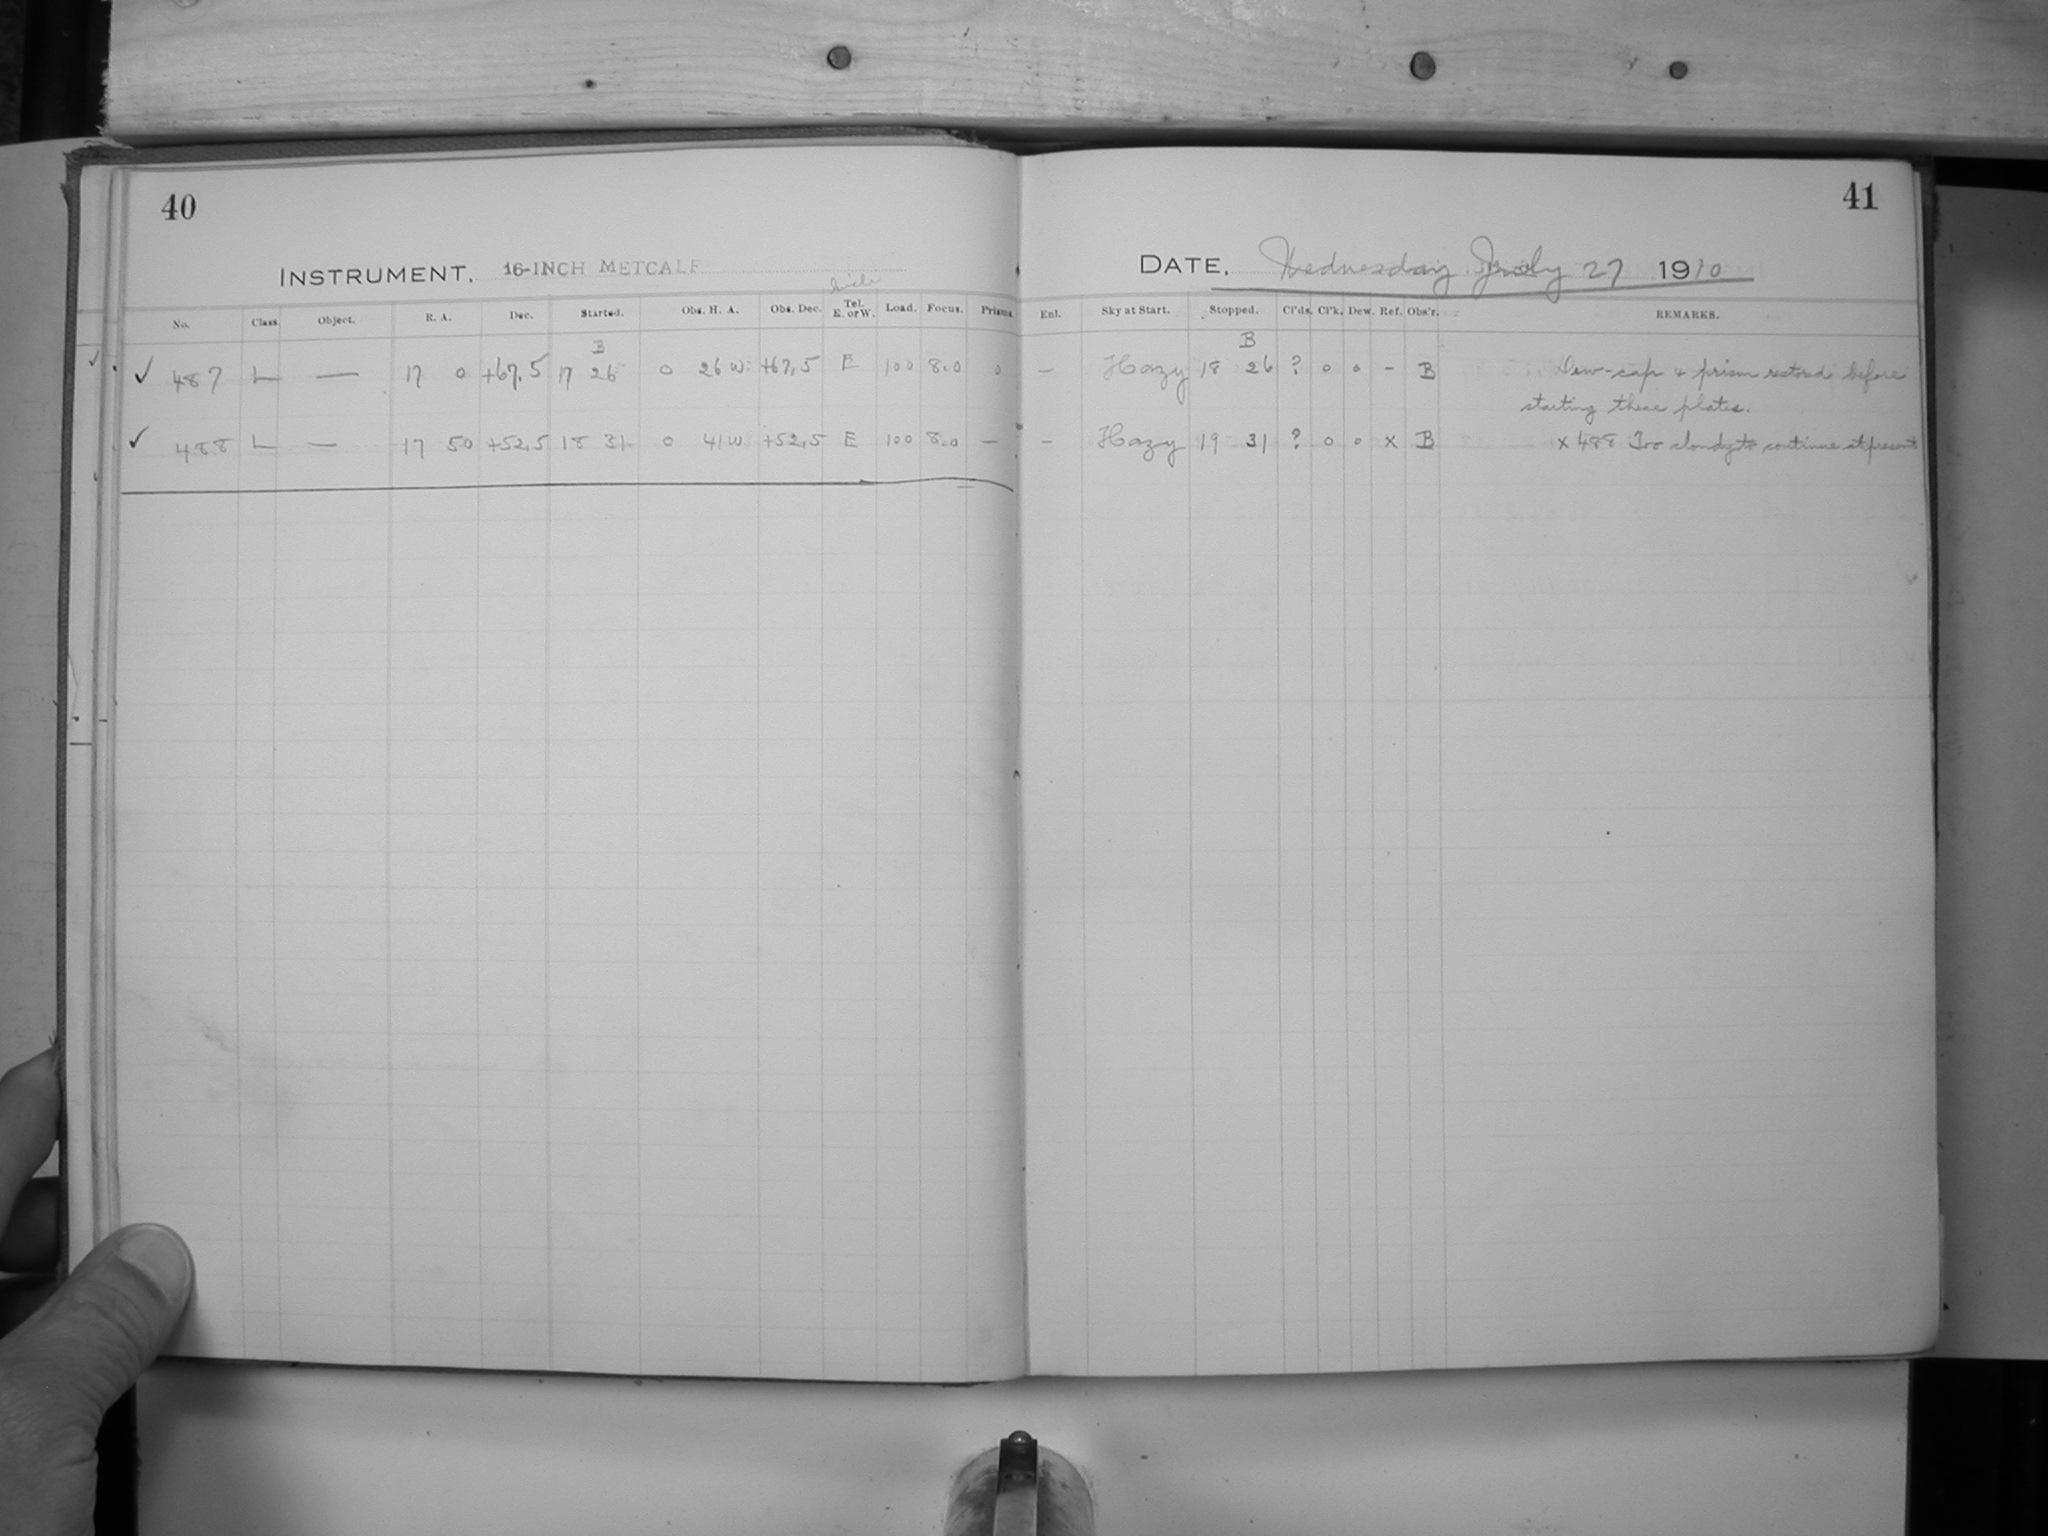 40
INSTRUMENT, 16-INCH METCALF
No. Class. Object. R. A. Dec. Started. Obs. H. A. Obs. Dec. Tel. E. or W. Load. Focus. Prisms.
B
✓ 487 L — 17 0 +67.5 17 26 0 26 W +67.5 E 100 8.0 0
✓ 488 L — 17 50 +52.5 18 31 0 41 W +52.5 E 100 8.0 —
41
DATE, Wednesday July 27 1910
Enl. Sky at Start. Stopped. Cl'ds. Cl'k. Dew. Ref. Obs'r. REMARKS.
B
– Hazy 18 26 ? 0 0 – B Dew-cap & prism restored before
starting these plates.
– Hazy 19 31 ? 0 0 x B x 488 Too cloudy to continue at present